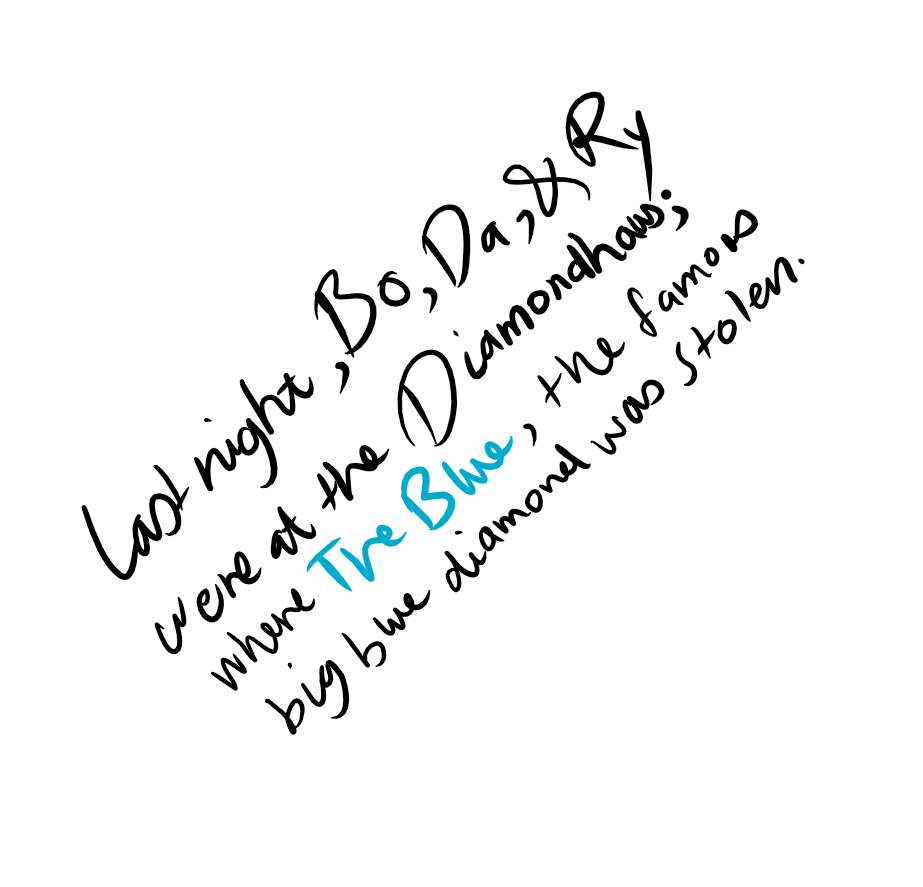 Last night, Bo, Da, & Ry
were at the Diamondhaus;
where The Blue, the famous
big blue diamond was stolen.